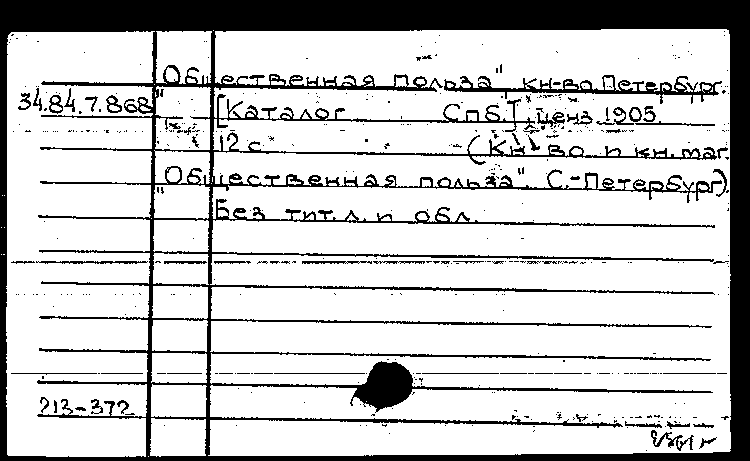 "Общественная польза" кн-во. Петербург.
34.84.7.868 [Каталог СПб.], ценз. 1905.
12 с (Кн-во и кн. маг.
"Общественная польза". С.-Петербург).
Без тит. л. и обл.
213-372